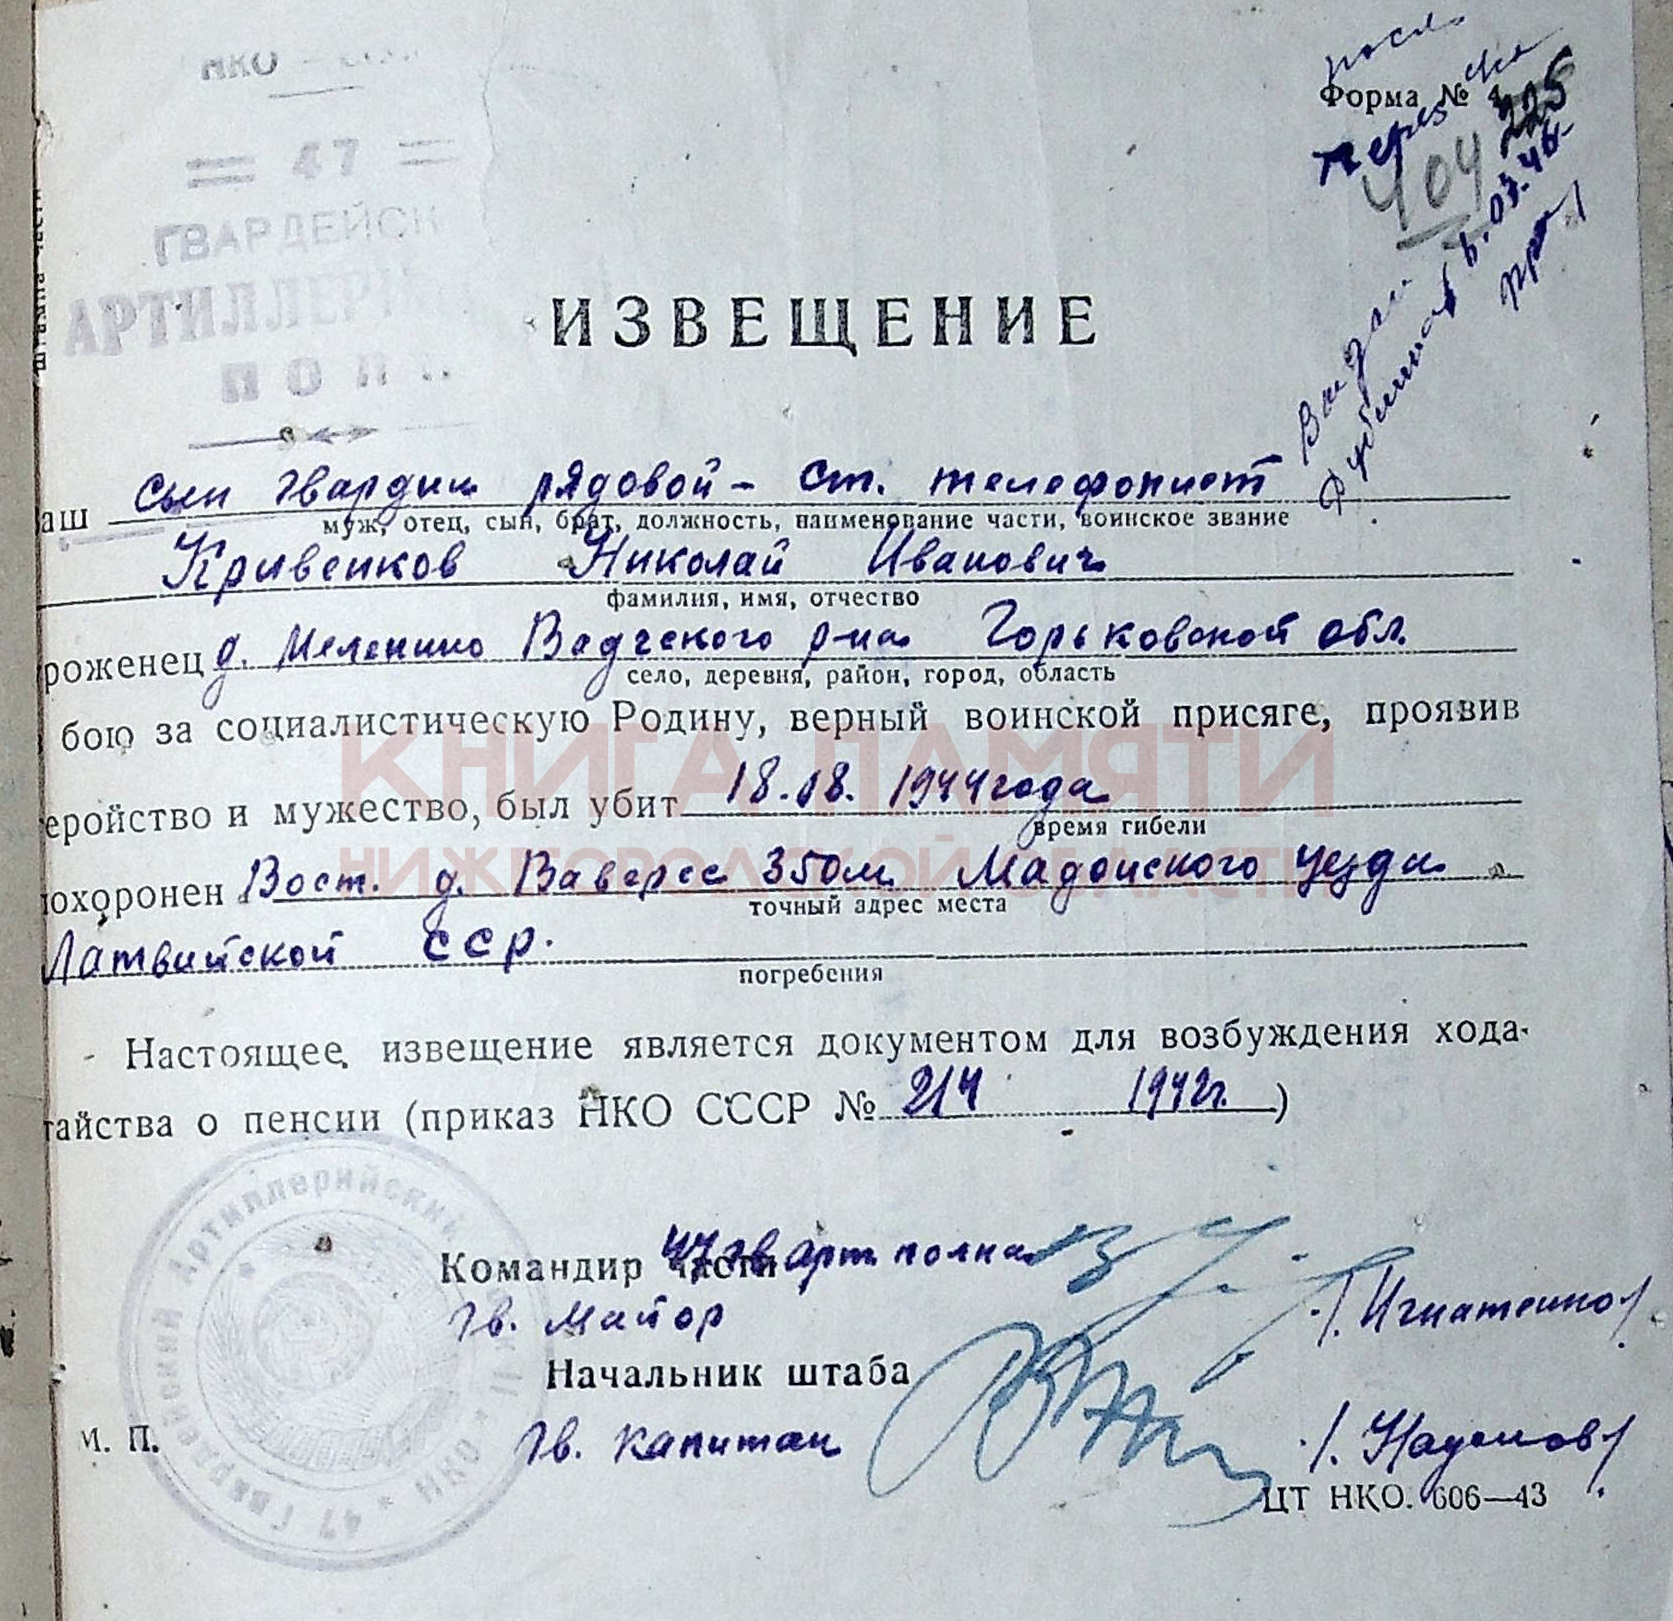 НКО
Форма № 4
225
404
47
ГВАРДЕЙСК
АРТИЛЛЕР
ИЗВЕЩЕНИЕ
аш сын гвардии рядовой – ст. телефонист
муж, отец, сын, брат, должность, наименование части, воинское звание
Кривенков Николай Иванович
фамилия, имя, отчество
роженец д. Меленино Вадчского р-на Горьковской обл.
село, деревня, район, город, область
бою за социалистическую Родину, верный воинской присяге, проявив
КНИГА ПАМЯТИ
еройство и мужество, был убит 18.08.1944 года
время гибели
НИЖЕГОРОДСКОЙ ОБЛАСТИ
похоронен Вост. д. Ваверес 350м Мадонского уезда
точный адрес места
Латвийской ССР.
погребения
Настоящее извещение является документом для возбуждения хода-
тайства о пенсии (приказ НКО СССР № 214 1942г.)
Командир части 47 гв арт полка
Гв. Майор /Игнатенко/
Начальник штаба
М. П. Гв. капитан /Наумов/
47 Гвардейский Артиллерийский НКО
ЦТ НКО. 606—43